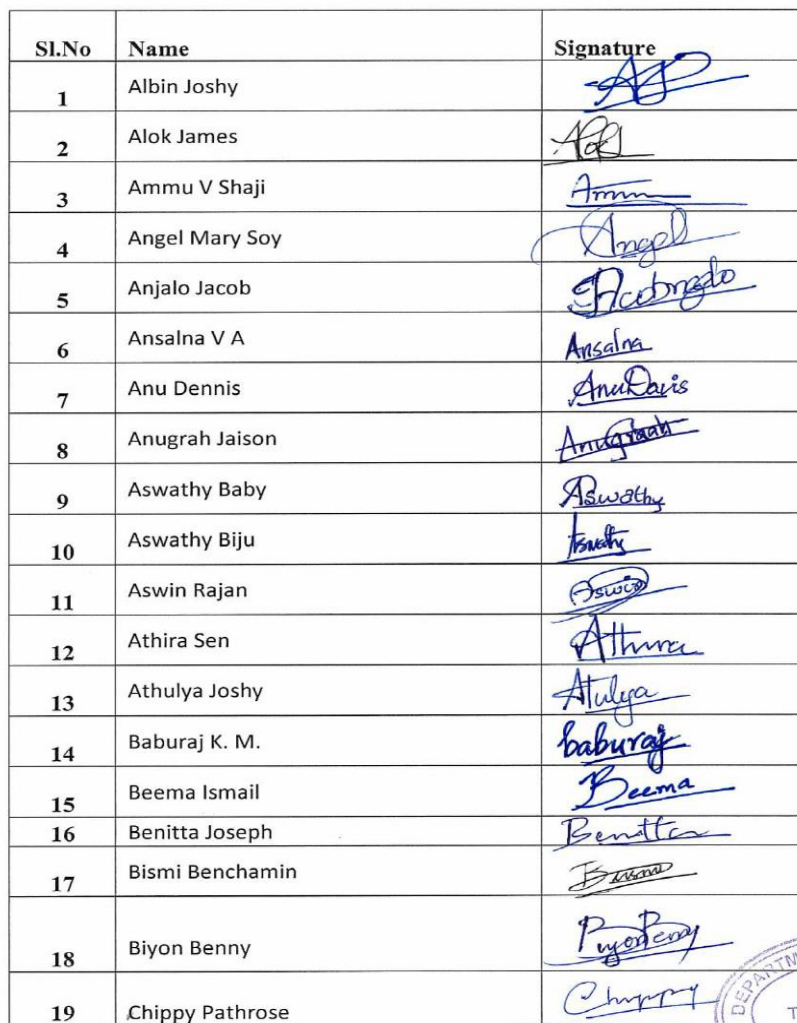 Sl.No Name Signature
1 Albin Joshy AJ
2 Alok James Alok
3 Ammu V Shaji Ammu
4 Angel Mary Soy Angel
5 Anjalo Jacob
6 Ansalna V A Ansalna
7 Anu Dennis AnuDavis
8 Anugrah Jaison Anugraah
9 Aswathy Baby Aswathy
10 Aswathy Biju Aswathy
11 Aswin Rajan Aswin
12 Athira Sen Athira
13 Athulya Joshy Atulya
14 Baburaj K. M. baburaj
15 Beema Ismail Beema
16 Benitta Joseph Benitta
17 Bismi Benchamin Bismi
18 Biyon Benny BiyonBenny
19 Chippy Pathrose Chippy